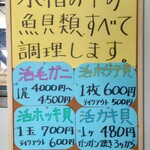 水槽の中の
魚貝類すべて
調理します。
活毛ガニ
1尾 4000円~
4500円
活ホタテ貝
1枚 600円
テイクアウト 500円
活ホッキ貝
1玉 700円
テイクアウト 600円
活カキ貝
1ヶ 480円
ガンガン焼き3ヶから